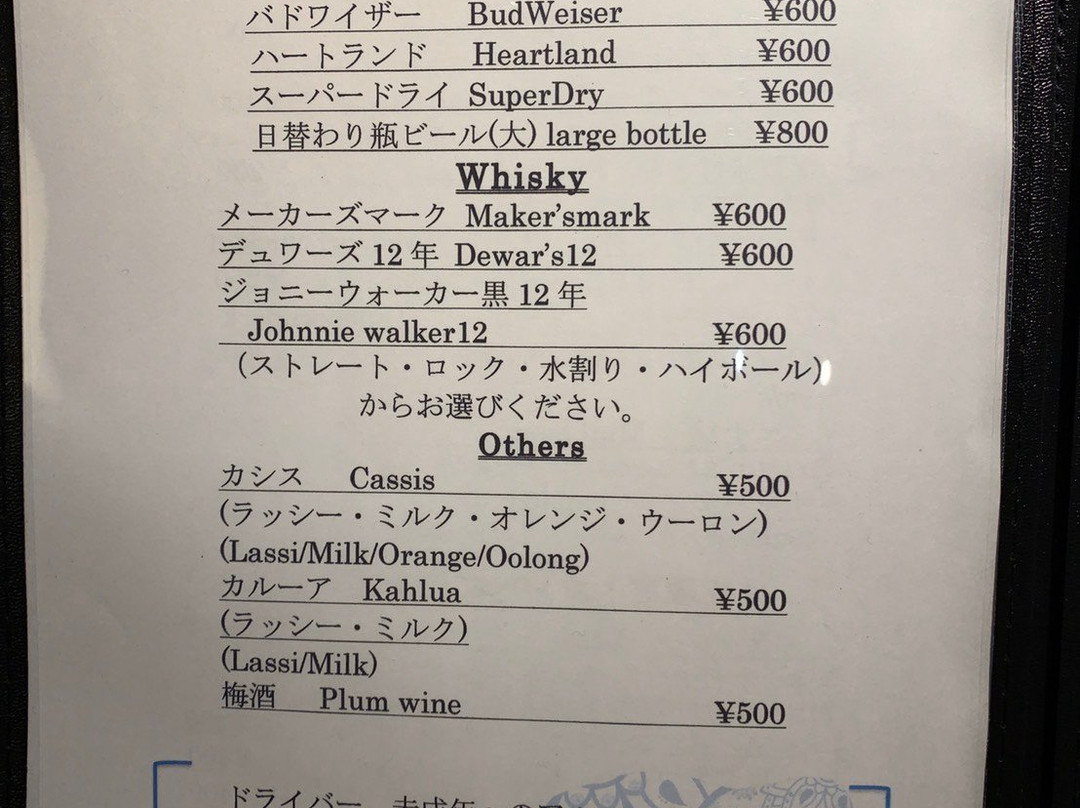 バドワイザー BudWeiser ¥600
ハートランド Heartland ¥600
スーパードライ SuperDry ¥600
日替わり瓶ビール(大) large bottle ¥800
Whisky
メーカーズマーク Maker'smark ¥600
デュワーズ 12 年 Dewar's12 ¥600
ジョニーウォーカー黒 12 年
Johnnie walker12 ¥600
(ストレート・ロック・水割り・ハイボール)
からお選びください。
Others
カシス Cassis ¥500
(ラッシー・ミルク・オレンジ・ウーロン)
(Lassi/Milk/Orange/Oolong)
カルーア Kahlua ¥500
(ラッシー・ミルク)
(Lassi/Milk)
梅酒 Plum wine ¥500
ドライバー